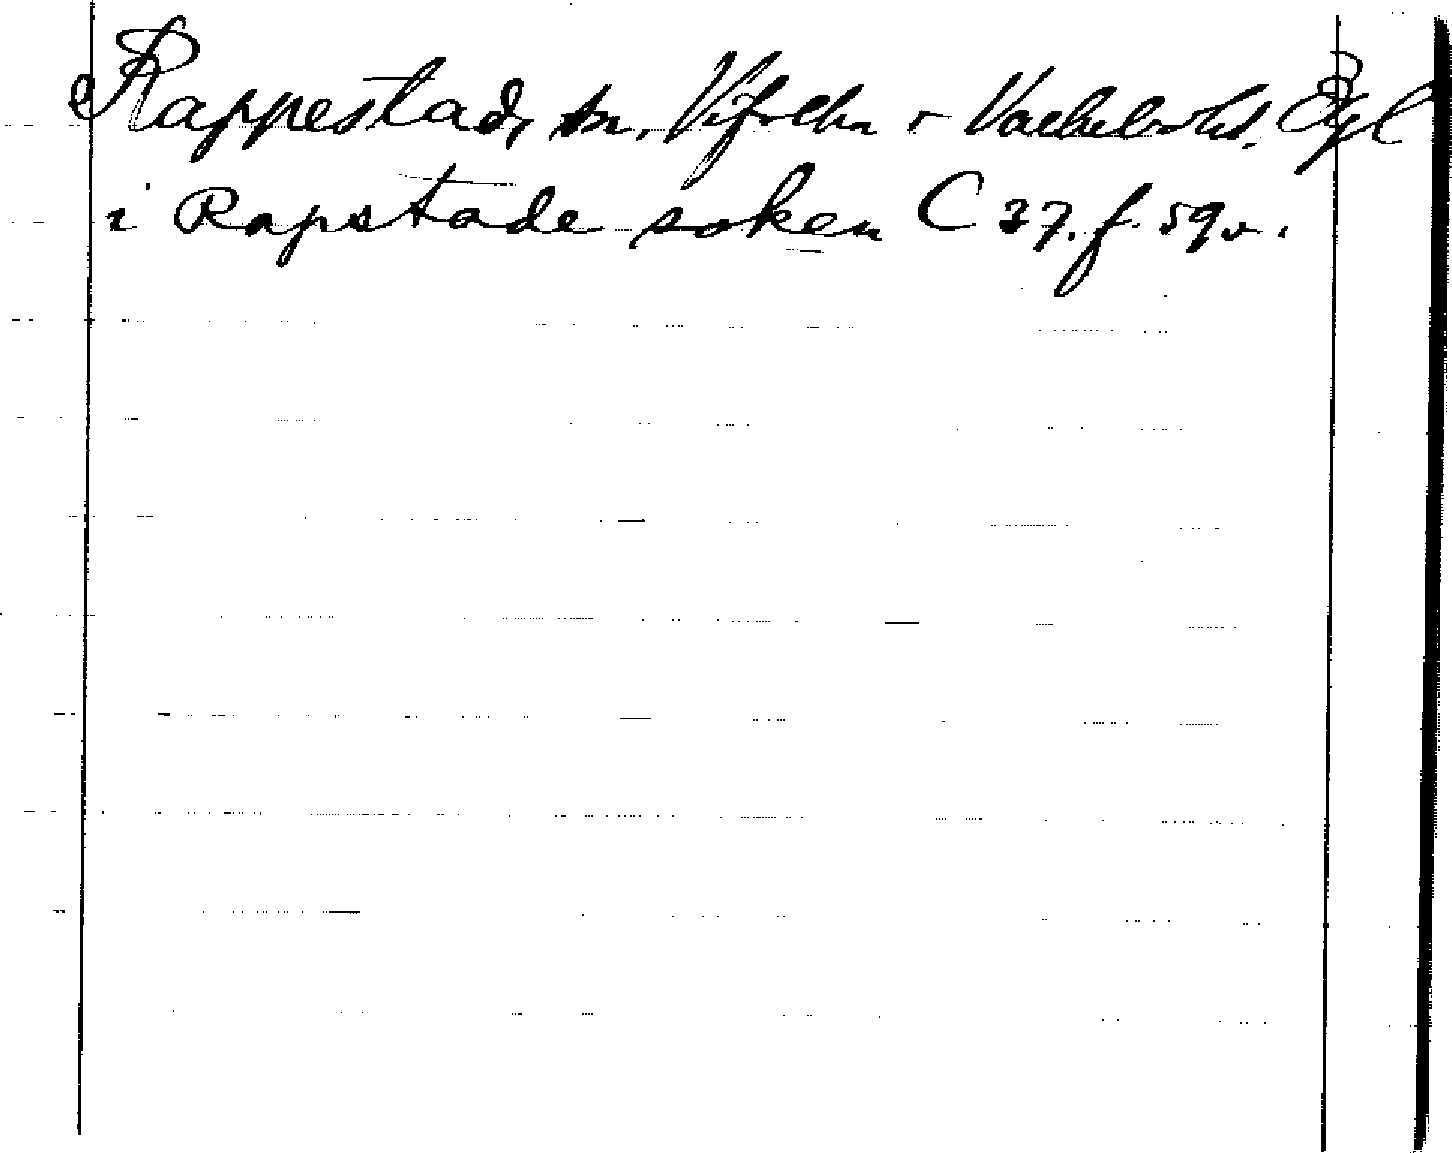 Rappestad, sn, Vifolka o Valkebohd. Ögl
i Rapstade soken C 37. f. 59 v.